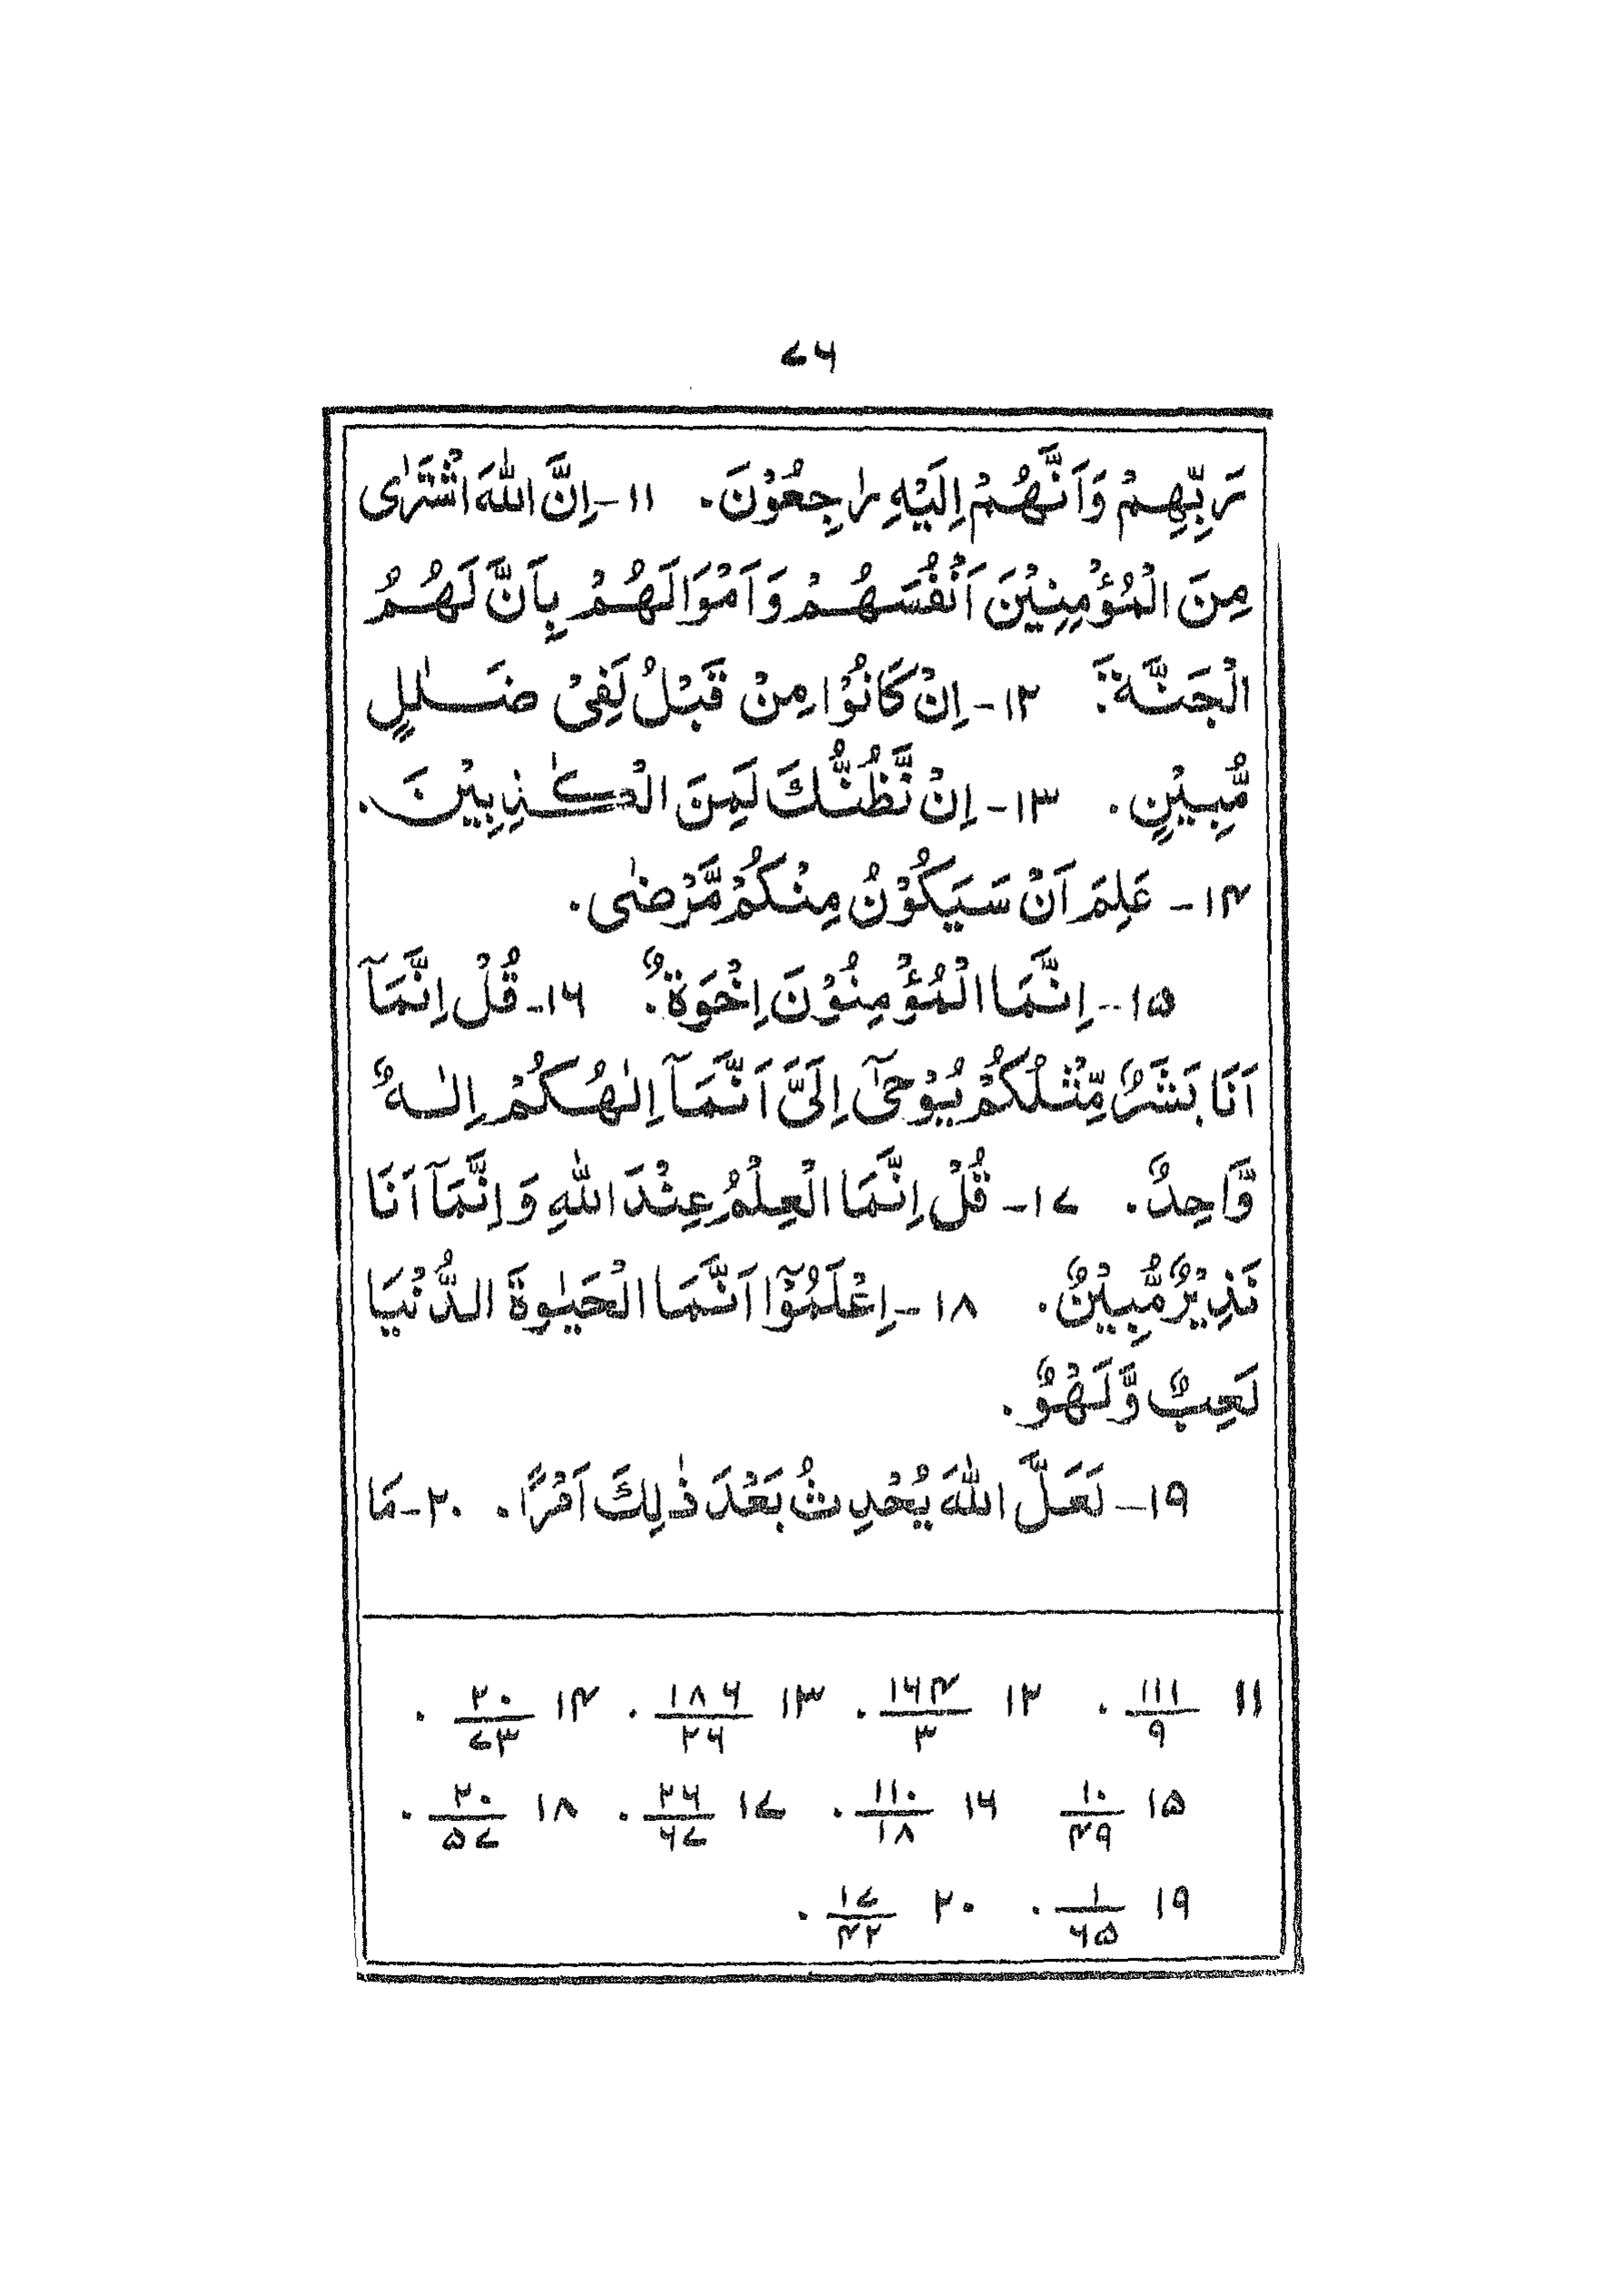 ۷۶
رَبِّهِمْ وَاَنَّهُمْ اِلَيْهِ رٰجِعُوْنَ. ۱۱-اِنَّ اللّٰهَ اشْتَرٰى
مِنَ الْمُؤْمِنِيْنَ اَنْفُسَهُمْ وَاَمْوَالَهُمْ بِاَنَّ لَهُمُ
الْجَنَّةَ. ۱۲-اِنْ كَانُوْا مِنْ قَبْلُ لَفِىْ ضَلٰلٍ
مُّبِيْنٍ. ۱۳-اِنْ نَّظُنُّكَ لَمِنَ الْكٰذِبِيْنَ.
۱۴-عَلِمَ اَنْ سَيَكُوْنُ مِنْكُمْ مَّرْضٰى.
۱۵--اِنَّمَا الْمُؤْمِنُوْنَ اِخْوَةٌ. ۱۶-قُلْ اِنَّمَآ
اَنَا بَشَرٌ مِّثْلُكُمْ يُوْحٰٓى اِلَىَّ اَنَّمَآ اِلٰهُكُمْ اِلٰهٌ
وَّاحِدٌ. ۱۷-قُلْ اِنَّمَا الْعِلْمُ عِنْدَ اللّٰهِ وَاِنَّمَآ اَنَا
نَذِيْرٌ مُّبِيْنٌ. ۱۸-اِعْلَمُوْٓا اَنَّمَا الْحَيٰوةُ الدُّنْيَا
لَعِبٌ وَّلَهْوٌ.
۱۹-لَعَلَّ اللّٰهَ يُحْدِثُ بَعْدَ ذٰلِكَ اَمْرًا. ۲۰-مَا
۱۱ ۱۱۱/۹. ۱۲ ۱۶۴/۳. ۱۳ ۱۸۶/۲۶. ۱۴ ۲۰/۷۳.
۱۵ ۱۰/۴۹ ۱۶ ۱۱۰/۱۸. ۱۷ ۲۶/۶۷. ۱۸ ۲۰/۵۷.
۱۹ ۱/۶۵. ۲۰ ۱۷/۴۲.